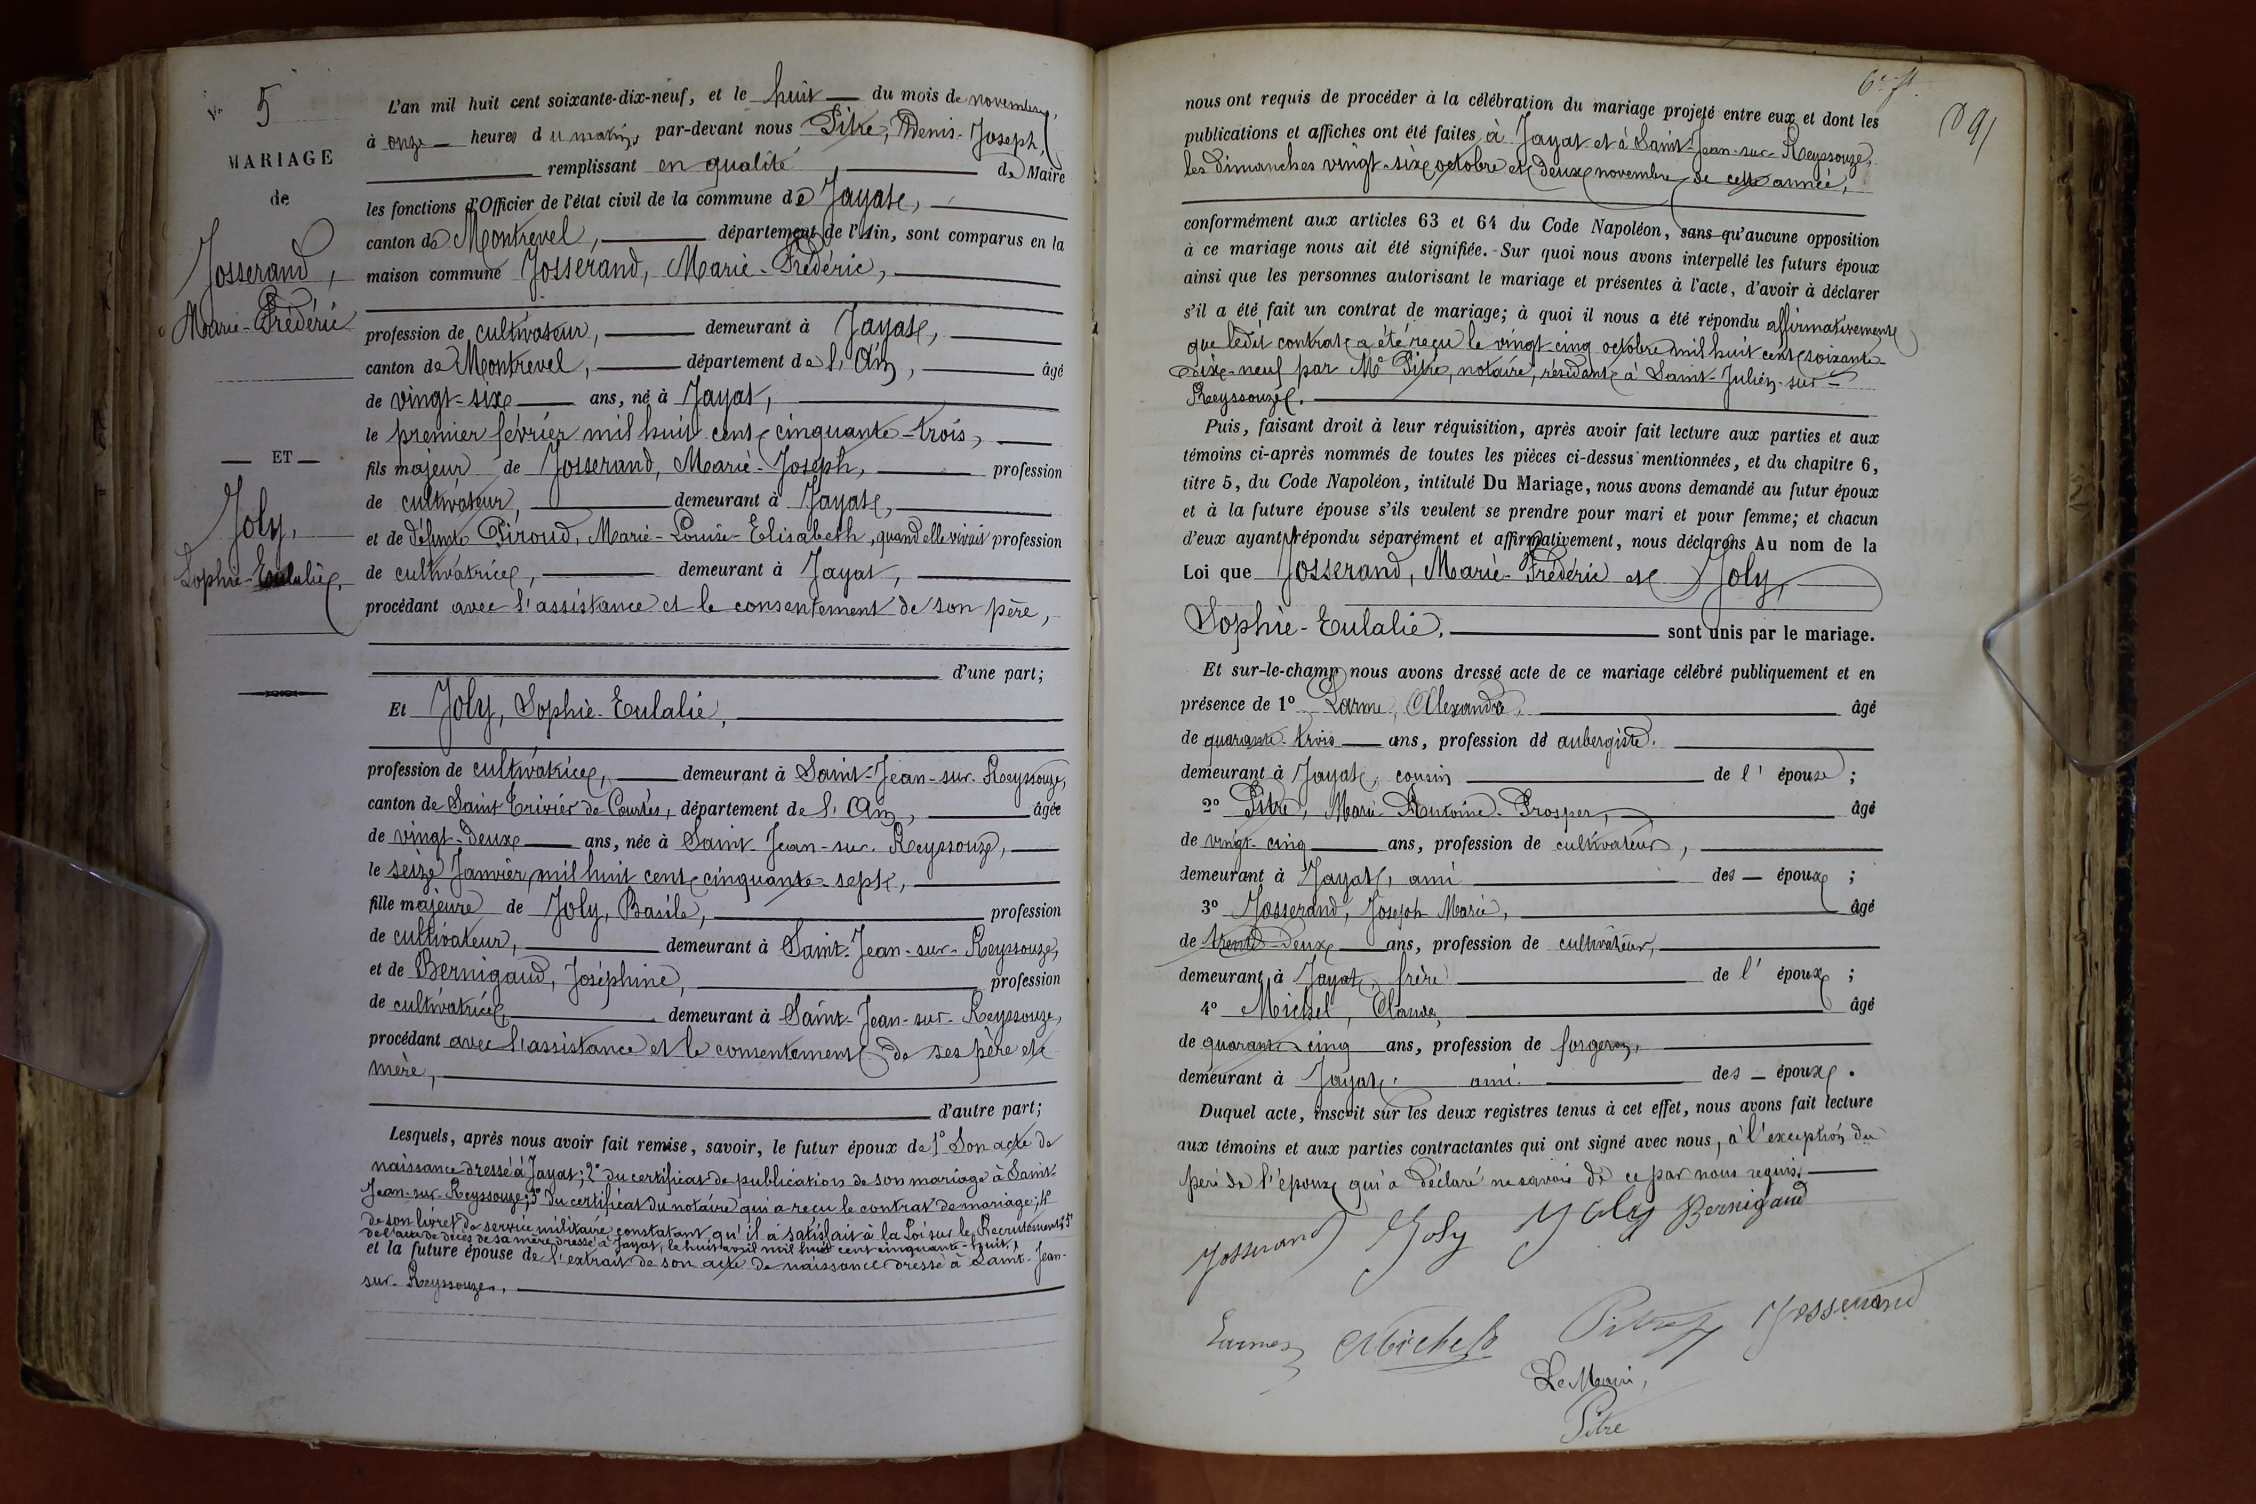 No 5
MARIAGE
de
Josserand,
Marie-Frédéric
ET
Joly,
Sophie-Eulalie,
L'an mil huit cent soixante-dix-neuf, et le huit du mois de novembre,
à onze heures du matin, par-devant nous Pitre, Denis-Joseph,
remplissant en qualité de Maire
les fonctions d'Officier de l'état civil de la commune de Jayat,
canton de Montrevel, département de l'Ain, sont comparus en la
maison commune Josserand, Marie-Frédéric,
profession de cultivateur, demeurant à Jayat,
canton de Montrevel, département de l'Ain, âgé
de vingt-six ans, né à Jayat,
le premier février mil huit cent cinquante-trois,
fils majeur de Josserand, Marie-Joseph, profession
de cultivateur, demeurant à Jayat,
et de défunte Piroud, Marie-Louise-Elisabeth, quand elle vivait profession
de cultivatrice, demeurant à Jayat,
procédant avec l'assistance et le consentement de son père,
d'une part;
Et Joly, Sophie-Eulalie,
profession de cultivatrice, demeurant à Saint-Jean-sur-Reyssouze,
canton de Saint Trivier de Courtes, département de l'Ain, âgée
de vingt-deux ans, née à Saint-Jean-sur-Reyssouze,
le seize Janvier mil huit cent cinquante-sept,
fille majeure de Joly, Basile, profession
de cultivateur, demeurant à Saint-Jean-sur-Reyssouze,
et de Bernigaud, Joséphine, profession
de cultivatrice, demeurant à Saint-Jean-sur-Reyssouze,
procédant avec l'assistance et le consentement de ses père et
mère,
d'autre part;
Lesquels, après nous avoir fait remise, savoir, le futur époux de 1° Son acte de
naissance dressé à Jayat; 2° du certificat de publication de son mariage à Saint-
Jean-sur-Reyssouze; 3° du certificat du notaire qui a reçu le contrat de mariage; 4°
de son livret de service militaire constatant qu'il a satisfait à la Loi sur le Recrutement; 5°
de l'acte de décès de sa mère dressé à Jayat, le huit avril mil huit cent cinquante-huit,
et la future épouse de l'extrait de son acte de naissance dressé à Saint-Jean-
sur-Reyssouze,
6e ft.
91
nous ont requis de procéder à la célébration du mariage projeté entre eux et dont les
publications et affiches ont été faites à Jayat et à Saint-Jean-sur-Reyssouze,
les dimanches vingt-six octobre et deux novembre de cette année,
conformément aux articles 63 et 64 du Code Napoléon, sans qu'aucune opposition
à ce mariage nous ait été signifiée. - Sur quoi nous avons interpellé les futurs époux
ainsi que les personnes autorisant le mariage et présentes à l'acte, d'avoir à déclarer
s'il a été fait un contrat de mariage; à quoi il nous a été répondu affirmativement
que ledit contrat a été reçu le vingt-cinq octobre mil huit cent soixante-
dix-neuf par Me Pitre, notaire, résidant à Saint-Julien-sur-
Reyssouze.
Puis, faisant droit à leur réquisition, après avoir fait lecture aux parties et aux
témoins ci-après nommés de toutes les pièces ci-dessus mentionnées, et du chapitre 6,
titre 5, du Code Napoléon, intitulé Du Mariage, nous avons demandé au futur époux
et à la future épouse s'ils veulent se prendre pour mari et pour femme; et chacun
d'eux ayant répondu séparément et affirmativement, nous déclarons Au nom de la
Loi que Josserand, Marie-Frédéric et Joly,
Sophie-Eulalie, sont unis par le mariage.
Et sur-le-champ nous avons dressé acte de ce mariage célébré publiquement et en
présence de 1° Larme, Alexandre, âgé
de quarante-trois ans, profession de aubergiste.
demeurant à Jayat, cousin de l'épouse;
2° Pitre, Marie-Antoine-Prosper, âgé
de vingt-cinq ans, profession de cultivateur,
demeurant à Jayat, ami des époux;
3° Josserand, Joseph Marie, âgé
de trente-deux ans, profession de cultivateur,
demeurant à Jayat, frère de l'époux;
4° Michel, Claude, âgé
de quarante cinq ans, profession de forgeron,
demeurant à Jayat, ami des époux.
Duquel acte, inscrit sur les deux registres tenus à cet effet, nous avons fait lecture
aux témoins et aux parties contractantes qui ont signé avec nous, à l'exception du
père de l'époux qui a déclaré ne savoir de ce par nous requis.
Josserand Joly Joly Bernigaud
Larme Michel Pitre Josserand
Le Maire,
Pitre